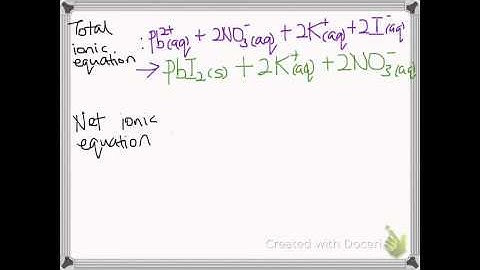 Total ionic equation : Pb²⁺(aq) + 2NO₃⁻(aq) + 2K⁺(aq) + 2I⁻(aq)
→ PbI₂(s) + 2K⁺(aq) + 2NO₃⁻(aq)
Net ionic
equation
Created with Doceri